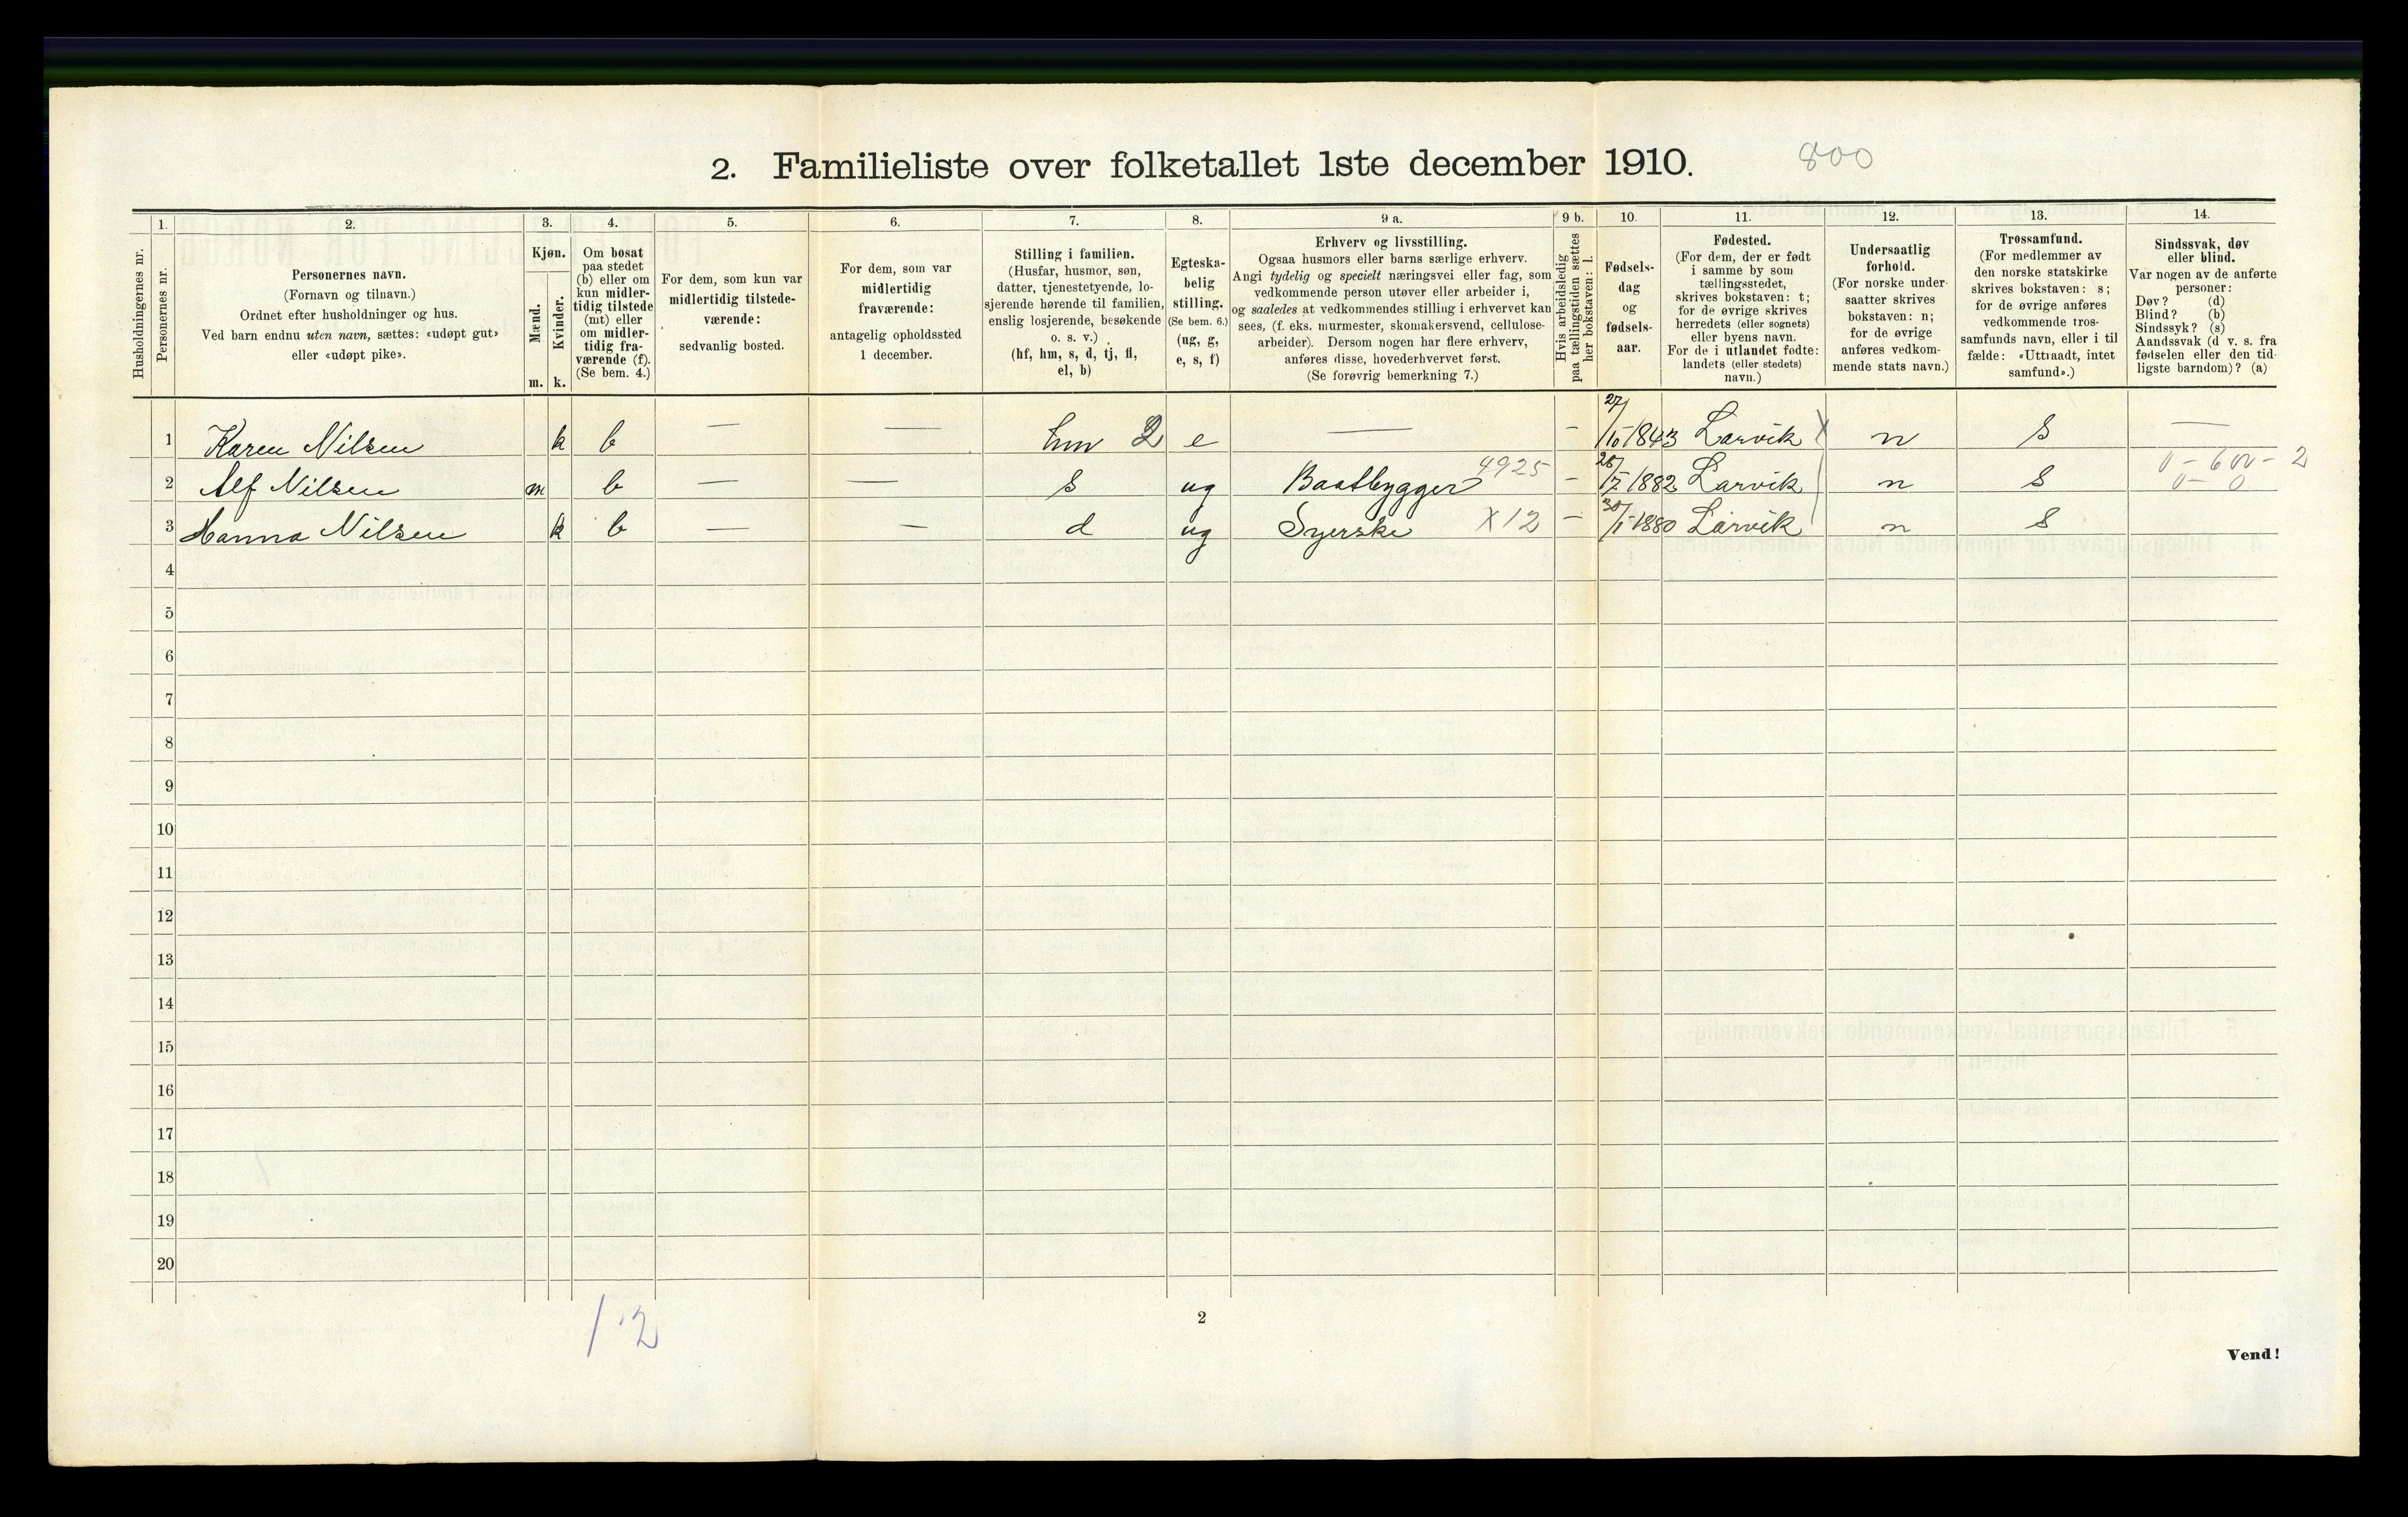 2. Familieliste over folketallet 1ste december 1910. 800
Husholdningernes nr.
1. Personernes nr.
2. Personernes navn. (Fornavn og tilnavn.) Ordnet efter husholdninger og hus. Ved barn endnu uten navn, sættes: «udøpt gut» eller «udøpt pike».
3. Kjøn. Mænd. m. Kvinder. k.
4. Om bosat paa stedet (b) eller om kun midlertidig tilstede (mt) eller om midlertidig fraværende (f). (Se bem. 4.)
5. For dem, som kun var midlertidig tilstedeværende: sedvanlig bosted.
6. For dem, som var midlertidig fraværende: antagelig opholdssted 1 december.
7. Stilling i familien. (Husfar, husmor, søn, datter, tjenestetyende, losjerende hørende til familien, enslig losjerende, besøkende o. s. v.) (hf, hm, s, d, tj, fl, el, b)
8. Egteskabelig stilling. (Se bem. 6.) (ug, g, e, s, f)
9 a. Erhverv og livsstilling. Ogsaa husmors eller barns særlige erhverv. Angi tydelig og specielt næringsvei eller fag, som vedkommende person utøver eller arbeider i, og saaledes at vedkommendes stilling i erhvervet kan sees, (f. eks. murmester, skomakersvend, cellulosearbeider). Dersom nogen har flere erhverv, anføres disse, hovederhvervet først. (Se forøvrig bemerkning 7.)
9 b. Hvis arbeidsledig paa tællingstiden sættes her bokstaven: l.
10. Fødselsdag og fødselsaar.
11. Fødested. (For dem, der er født i samme by som tællingsstedet, skrives bokstaven: t; for de øvrige skrives herredets (eller sognets) eller byens navn. For de i utlandet fødte: landets (eller stedets) navn.)
12. Undersaatlig forhold. (For norske undersaatter skrives bokstaven: n; for de øvrige anføres vedkommende stats navn.)
13. Trossamfund. (For medlemmer av den norske statskirke skrives bokstaven: s; for de øvrige anføres vedkommende trossamfunds navn, eller i tilfælde: «Uttraadt, intet samfund».)
14. Sindssvak, døv eller blind. Var nogen av de anførte personer: Døv? (d) Blind? (b) Sindssyk? (s) Aandssvak (d v. s. fra fødselen eller den tidligste barndom)? (a)
1 Karen Nilsen k b — — hm 2 e — - 27/10 1843 Larvik X n S —
2 Alf Nilsen m b — — s ug Baatbygger 4925 - 1882 Larvik n S
3 Hanna Nilsen k b — — d ug Syerske X12 - 30/1-1880 Larvik n S
4
5
6
7
8
9
10
11
12
13
14
15
16
17
18
19
20
1·2
2
Vend!